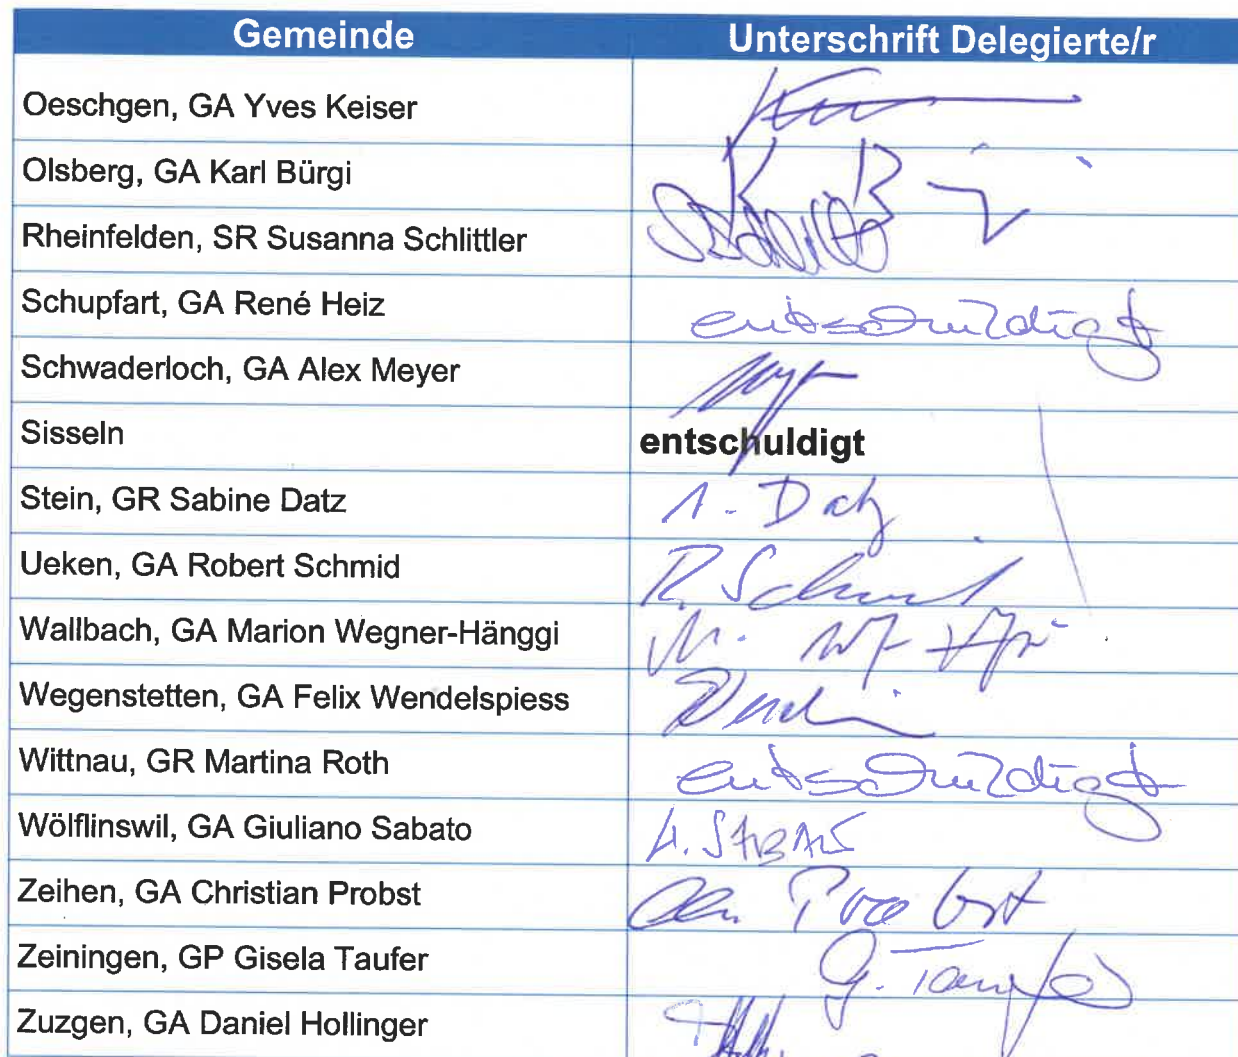 Gemeinde Unterschrift Delegierte/r
Oeschgen, GA Yves Keiser
Olsberg, GA Karl Bürgi K. B
Rheinfelden, SR Susanna Schlittler
Schupfart, GA René Heiz entschuldigt
Schwaderloch, GA Alex Meyer
Sisseln entschuldigt
Stein, GR Sabine Datz S. Datz
Ueken, GA Robert Schmid R. Schmid
Wallbach, GA Marion Wegner-Hänggi
Wegenstetten, GA Felix Wendelspiess
Wittnau, GR Martina Roth entschuldigt
Wölflinswil, GA Giuliano Sabato
Zeihen, GA Christian Probst Probst
Zeiningen, GP Gisela Taufer G. Taufer
Zuzgen, GA Daniel Hollinger